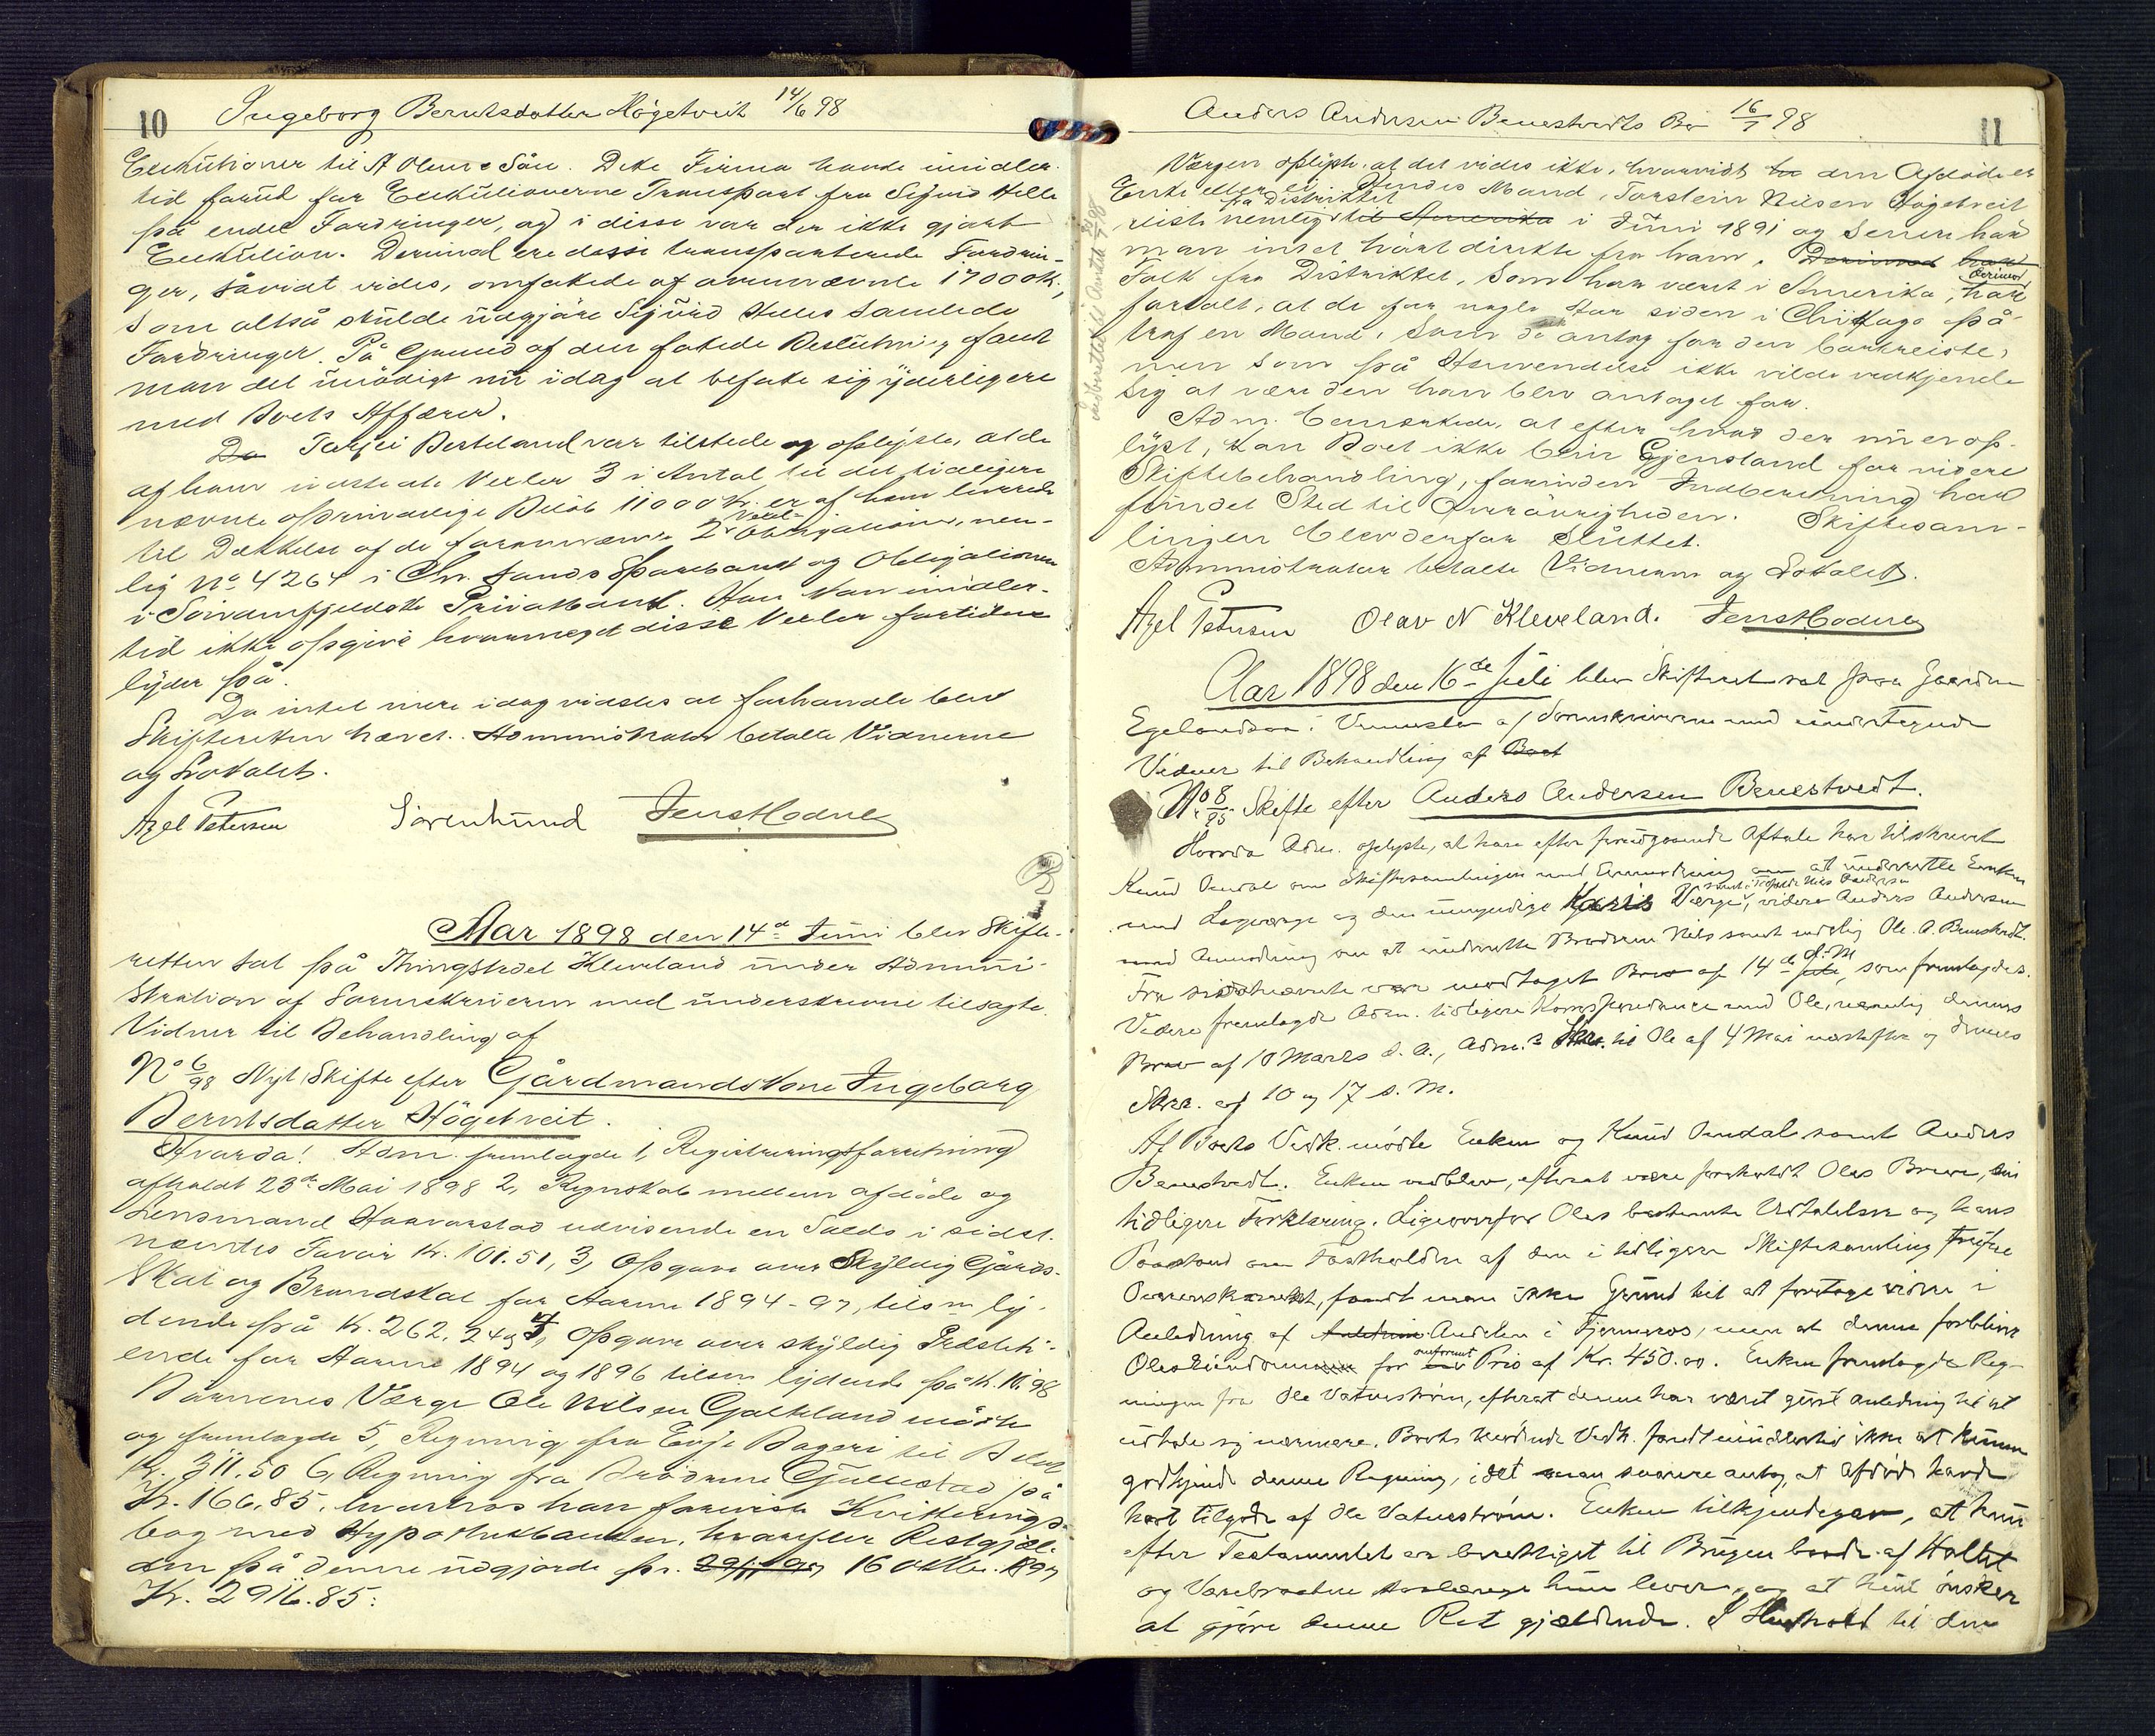 10 Ingeborg Berntsdatter Högetveit 14/6 98
Exekutioner til A Olsen & Sön. Dette Firma havde imidler-
tid forud for Exekutionerne Transport fra Sigurd Hille
på endel Fordringer, og i disse var der ikke gjort
Exekution. Derimod ere disse transporterede Fordrin-
ger, såvidt vides, omfattede af ovennævnte 17000 Kr.,
som altså skulde udgjöre Sigurd Hilles samlede
Fordringer. På Grund af den fattede Beslutning fandt
man det unödigt nu idag at befatte sig yderligere
med Boets Affærer.
Da Tarjei Besteland var tilstede og oplyste, at de
af ham udstedte Vexler 3 i Antal til det tidligere
nævnte oprindelige Belöb 11000 Kr. er af ham leverede
til Dækkelse af de forannævnte 2 Vexel-Obligationer, nem-
lig No 4264 i Chr.sands Sparebank og Obligationen
i Sövdenfjeldske Privatbank. Han kan imidler-
tid ikke opgive hvormeget disse Vexler fortiden
lyder på.
Da intet mere idag vidstes at forhandle blev
Skifteretten hævet. Administrator betalte Vidnerne
og Lokalet.
Axel Petersen Sören Lund Jens Hodne
Aar 1898 den 14de Juni blev Skifte-
retten sat på Thingstedet Kleveland under Admini-
stration af Sorenskriveren med underskrevne tilsagte
Vidner til Behandling af
No 6/98 Nyt Skifte efter Gårdmandskone Ingeborg
Berntsdatter Högetveit.
Hvorda! Adm. fremlagde 1, Registreringsforretning
afholdt 23de Mai 1898 2, Regnskab mellem afdöde og
Lensmand Haavarstad udvisende en Saldo i sidst-
nævntes Favör Kr. 101.51, 3, Opgave over skyldig Gårds-
Skat og Brandskat for Aarene 1894-97, tils. ly-
dende på Kr. 262.24 og 4, Opgave over skyldig
for Aarene 1894 og 1896 tilsm. lydende på Kr. 10.98
Börnenes Værge Ole Nilsen Galteland mödte
og fremlagde 5, Regning fra Evje Bageri til Belöb
Kr. 311.50 6, Regning fra Brödrene Gullestad på
Kr. 166.85, hvorhos han foreviste Kvitterings-
bog med Hypothekbanken, hvorefter Restgjæl-
den på denne udgjorde pr. 16 Oktbr. 1897
Kr. 2916.85:
Anders Andersen Benestvedts Bo 16/7 98 11
Værgen oplyste, at det vides ikke, hvorvidt den Afdöde er
Enke eller ei. Hendes Mand, Torstein Nilsen Högetveit
reiste nemlig fra Distriktet til Amerika i Juni 1891 og senere har
man intet hört direkte fra ham. Derimod har
Folk fra Distriktet, som har været i Amerika, derimod har
fortalt, at de for nogle Aar siden i Chikago på-
traf en Mand, som de antog for den bortreiste,
men som på Henvendelse ikke vilde vedkjende
sig at være den han blev antaget for.
Adm. bemærkede, at efter hvad der nu er op-
lyst, kan Boet ikke blive Gjenstand for videre
Skiftebehandling, forinden Indberetning har
fundet Sted til Överövrigheden. Skiftesam-
lingen blev derfor sluttet.
Administrator betalte Vidnerne og Lokalet.
Axel Petersen Olav N Kleveland. Jens Hodne
Indberettet til Amtet 7/98
Aar 1898 den 16de Juli blev Skifteret sat paa Gaarden
Egelandsaa i Vennesla af Sorenskriveren med undertegnede
Vidner til Behandling af Boet
No 8/95 Skifte efter Anders Andersen Benestvedt.
Hvorda Adm. oplyste, at han efter forudgaaende Aftale har tilskrevet
Knud Omdal om Skiftesamlingen med Anmodning om at underrette Enken
med Lagværge og den umyndige Karis Værge, samt Nils Andersen videre Anders Andersen
med Anmodning om at underrette Broderen Nils samt endelig Ole A. Benestvedt.
Fra sidstnævnte var modtaget Brev af 14de d. M, som fremlagdes.
Videre fremlagde Adm. tidligere Korrespondance med Ole, nemlig dennes
Brev af 10 Marts d. A., Adm.s Skr. til Ole af 4 Mai næstefter og dennes
Skrr. af 10 og 17 s. M.
Af Boets Vedk. mödte Enken og Knud Omdal samt Anders
Benestvedt. Enken vedblev, efterat være foreholdt Oles Breve, sin
tidligere Forklaring. Ligeoverfor Oles bestemte Udtalelser og hans
Paastand om Fastholden af den i tidligere Skiftesamling trufne
Overenskomst, fandt man ikke Grund til at foretage videre i
Anledning af Andelen i Fjermeros, men at denne forbliver
Oles Eiendom for omforenet Pris af Kr. 450.00. Enken fremlagde Reg-
ningen fra Ole Vatneström, efterat denne har været givet Anledning til at
udtale sig nærmere. Boets mödende Vedk. fandt imidlertid ikke at kunne
godkjende denne Regning, idet man snarere antog, at Afdöde havde
havt tilgode af Ole Vatneström. Enken tilkjendegav, at hun
efter Testamentet er berettiget til Brugen baade af Holtet
og Varebraatene saalænge hun lever, og at hun önsker
at gjöre denne Ret gjældende. I Henhold til den